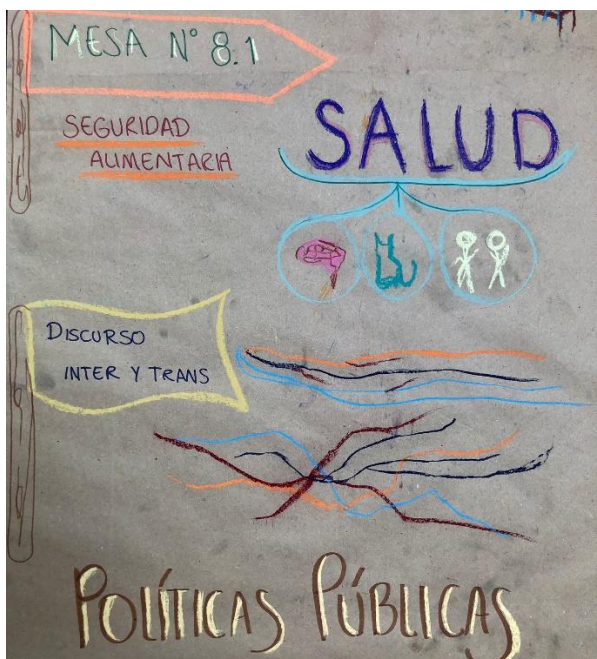 MESA N° 8.1
SEGURIDAD
ALIMENTARIA
SALUD
DISCURSO
INTER Y TRANS
POLÍTICAS PÚBLICAS